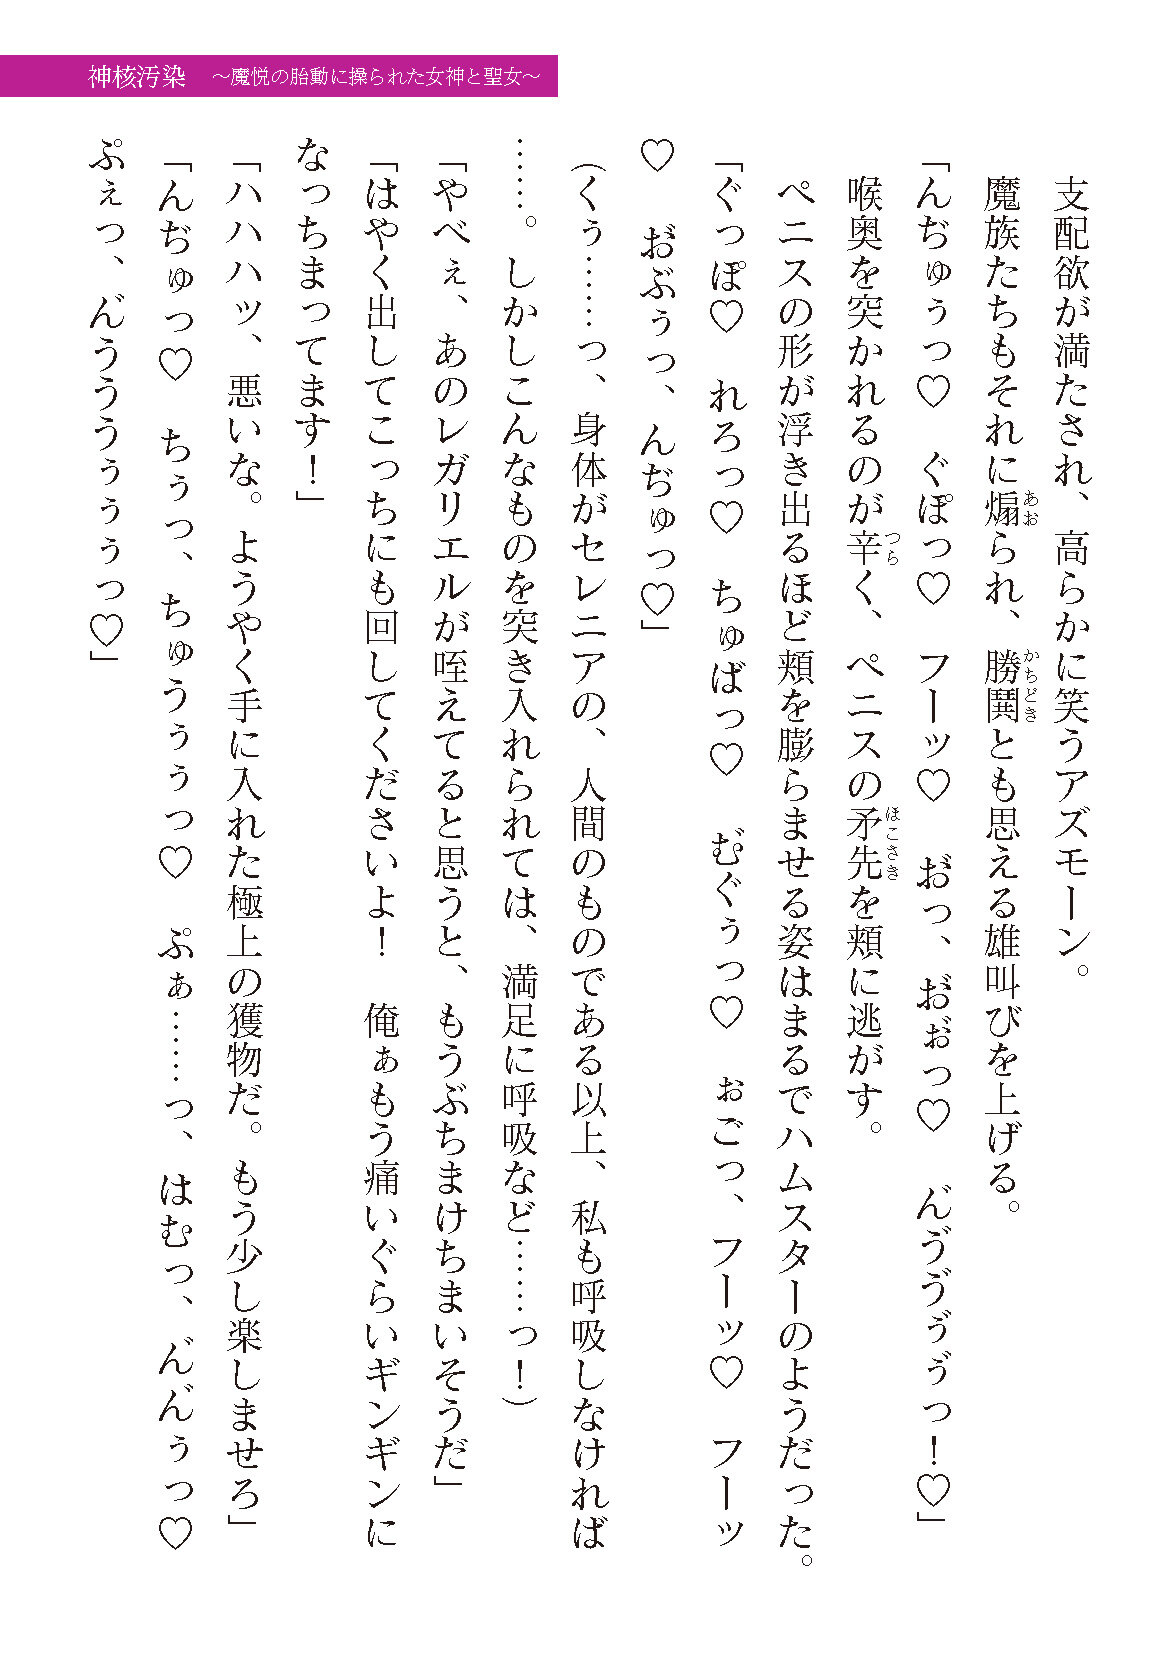 神核汚染　～魔悦の胎動に操られた女神と聖女～
　支配欲が満たされ、高らかに笑うアズモーン。
　魔族たちもそれに煽られ、勝鬨とも思える雄叫びを上げる。
「んぢゅぅっ♡　ぐぽっ♡　フーッ♡　お゙っ、お゙ぉ゙っ♡　ん゙ゔゔぅ゙ぅ゙っ！♡」
　喉奥を突かれるのが辛く、ペニスの矛先を頬に逃がす。
　ペニスの形が浮き出るほど頬を膨らませる姿はまるでハムスターのようだった。
「ぐっぽ♡　れろっ♡　ちゅばっ♡　む゙ぐぅっ♡　ぉごっ、フーッ♡　フーッ
♡　お゙ぶぅっ、んぢゅっ♡」
（くぅ……っ、身体がセレニアの、人間のものである以上、私も呼吸しなければ
……。しかしこんなものを突き入れられては、満足に呼吸など……っ！）
「やべぇ、あのレガリエルが咥えてると思うと、もうぶちまけちまいそうだ」
「はやく出してこっちにも回してくださいよ！　俺ぁもう痛いぐらいギンギンに
なっちまってます！」
「ハハハッ、悪いな。ようやく手に入れた極上の獲物だ。もう少し楽しませろ」
「んぢゅっ♡　ちぅっ、ちゅうぅぅっ♡　ぷぁ……っ、はむっ、ん゙ん゙ぅっ♡
ぷぇっ、ん゙うううぅぅぅっ♡」